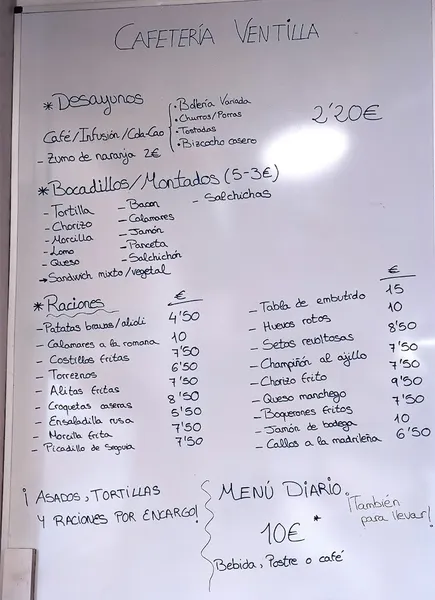 CAFETERÍA VENTILLA
* Desayunos
Café/Infusión/Cola-Cao
- Zumo de naranja 2€
· Bollería Variada
· Churros/Porras
· Tostadas
· Bizcocho casero
2'20€
* Bocadillos/Montados (5-3€)
- Tortilla
- Chorizo
- Morcilla
- Lomo
- Queso
→ Sandwich mixto/vegetal
- Bacon
- Calamares
- Jamón
- Panceta
- Salchichón
- Salchichas
* Raciones €
- Patatas bravas/alioli 4'50
- Calamares a la romana 10
- Costillas fritas 7'50
- Torreznos 6'50
- Alitas fritas 7'50
- Croquetas caseras 8'50
- Ensaladilla rusa 5'50
- Morcilla frita 7'50
- Picadillo de Segovia 7'50
€
- Tabla de embutido 15
- Huevos rotos 10
- Setas revoltosas 8'50
- Champiñón al ajillo 7'50
- Chorizo frito 7'50
- Queso manchego 9'50
- Boquerones fritos 7'50
- Jamón de bodega 10
- Callos a la madrileña 6'50
¡ASADOS, TORTILLAS
Y RACIONES POR ENCARGO!
MENÚ DIARIO
10€ *
Bebida, Postre o café
¡También
para llevar!